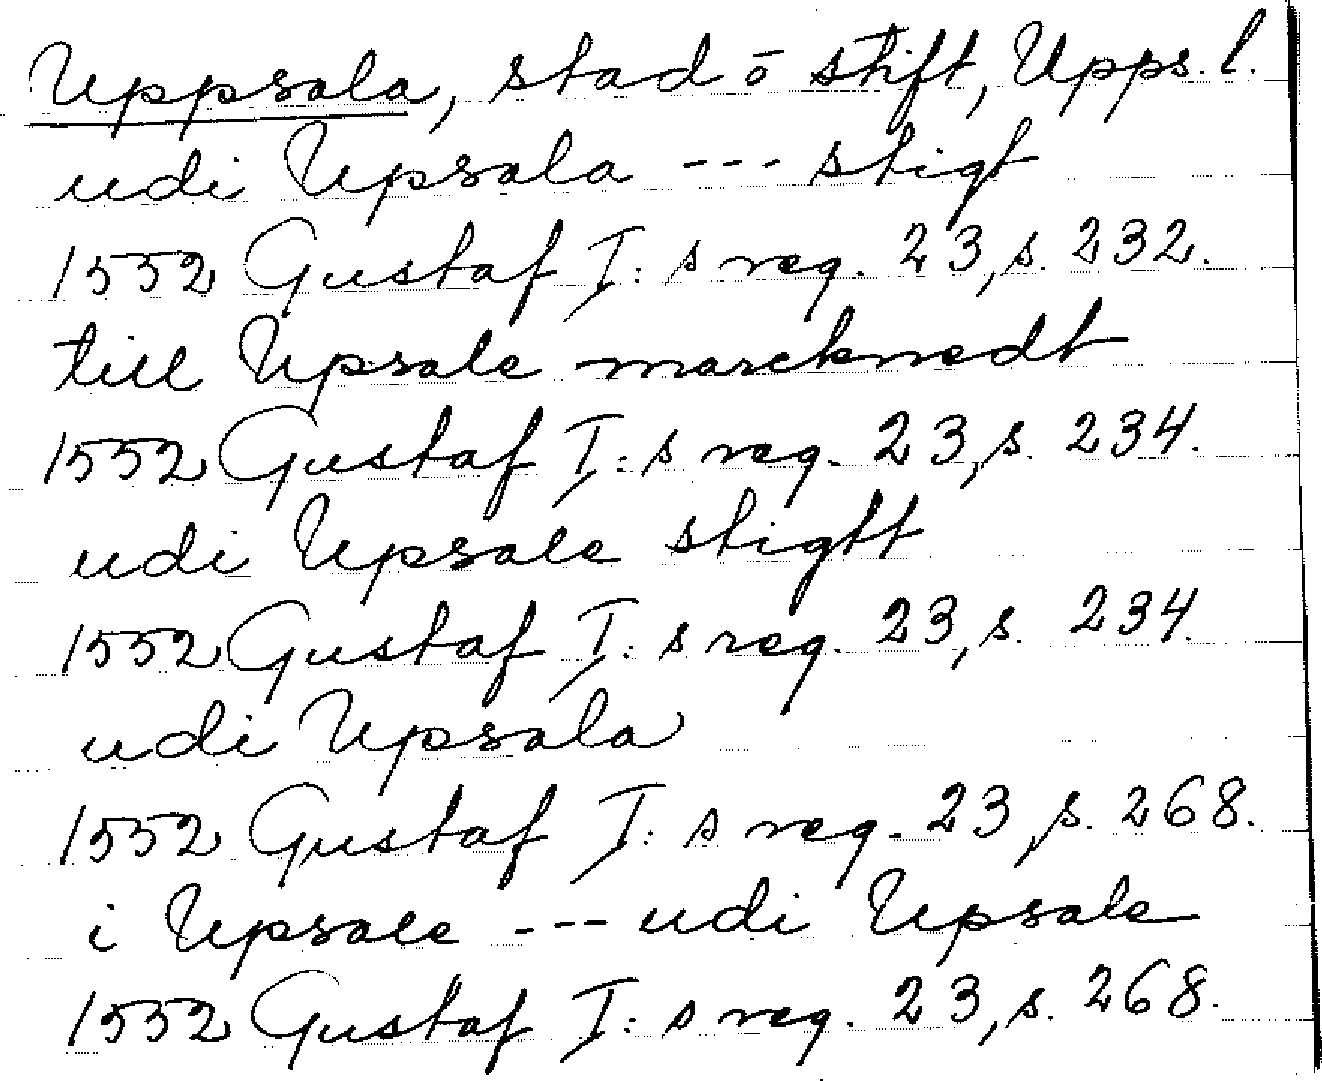 Uppsala, stad o stift, Upps. l.
udi Upsala --- stigt
1552 Gustaf I: s reg. 23, s. 232.
till Upsale marcknedt
1552 Gustaf I: s reg. 23, s. 234.
udi Upsale stigtt
1552 Gustaf I: s reg. 23, s. 234.
udi Upsala
1552 Gustaf I: s reg. 23, s. 268.
i Upsale --- udi Upsale
1552 Gustaf I: s reg. 23, s. 268.